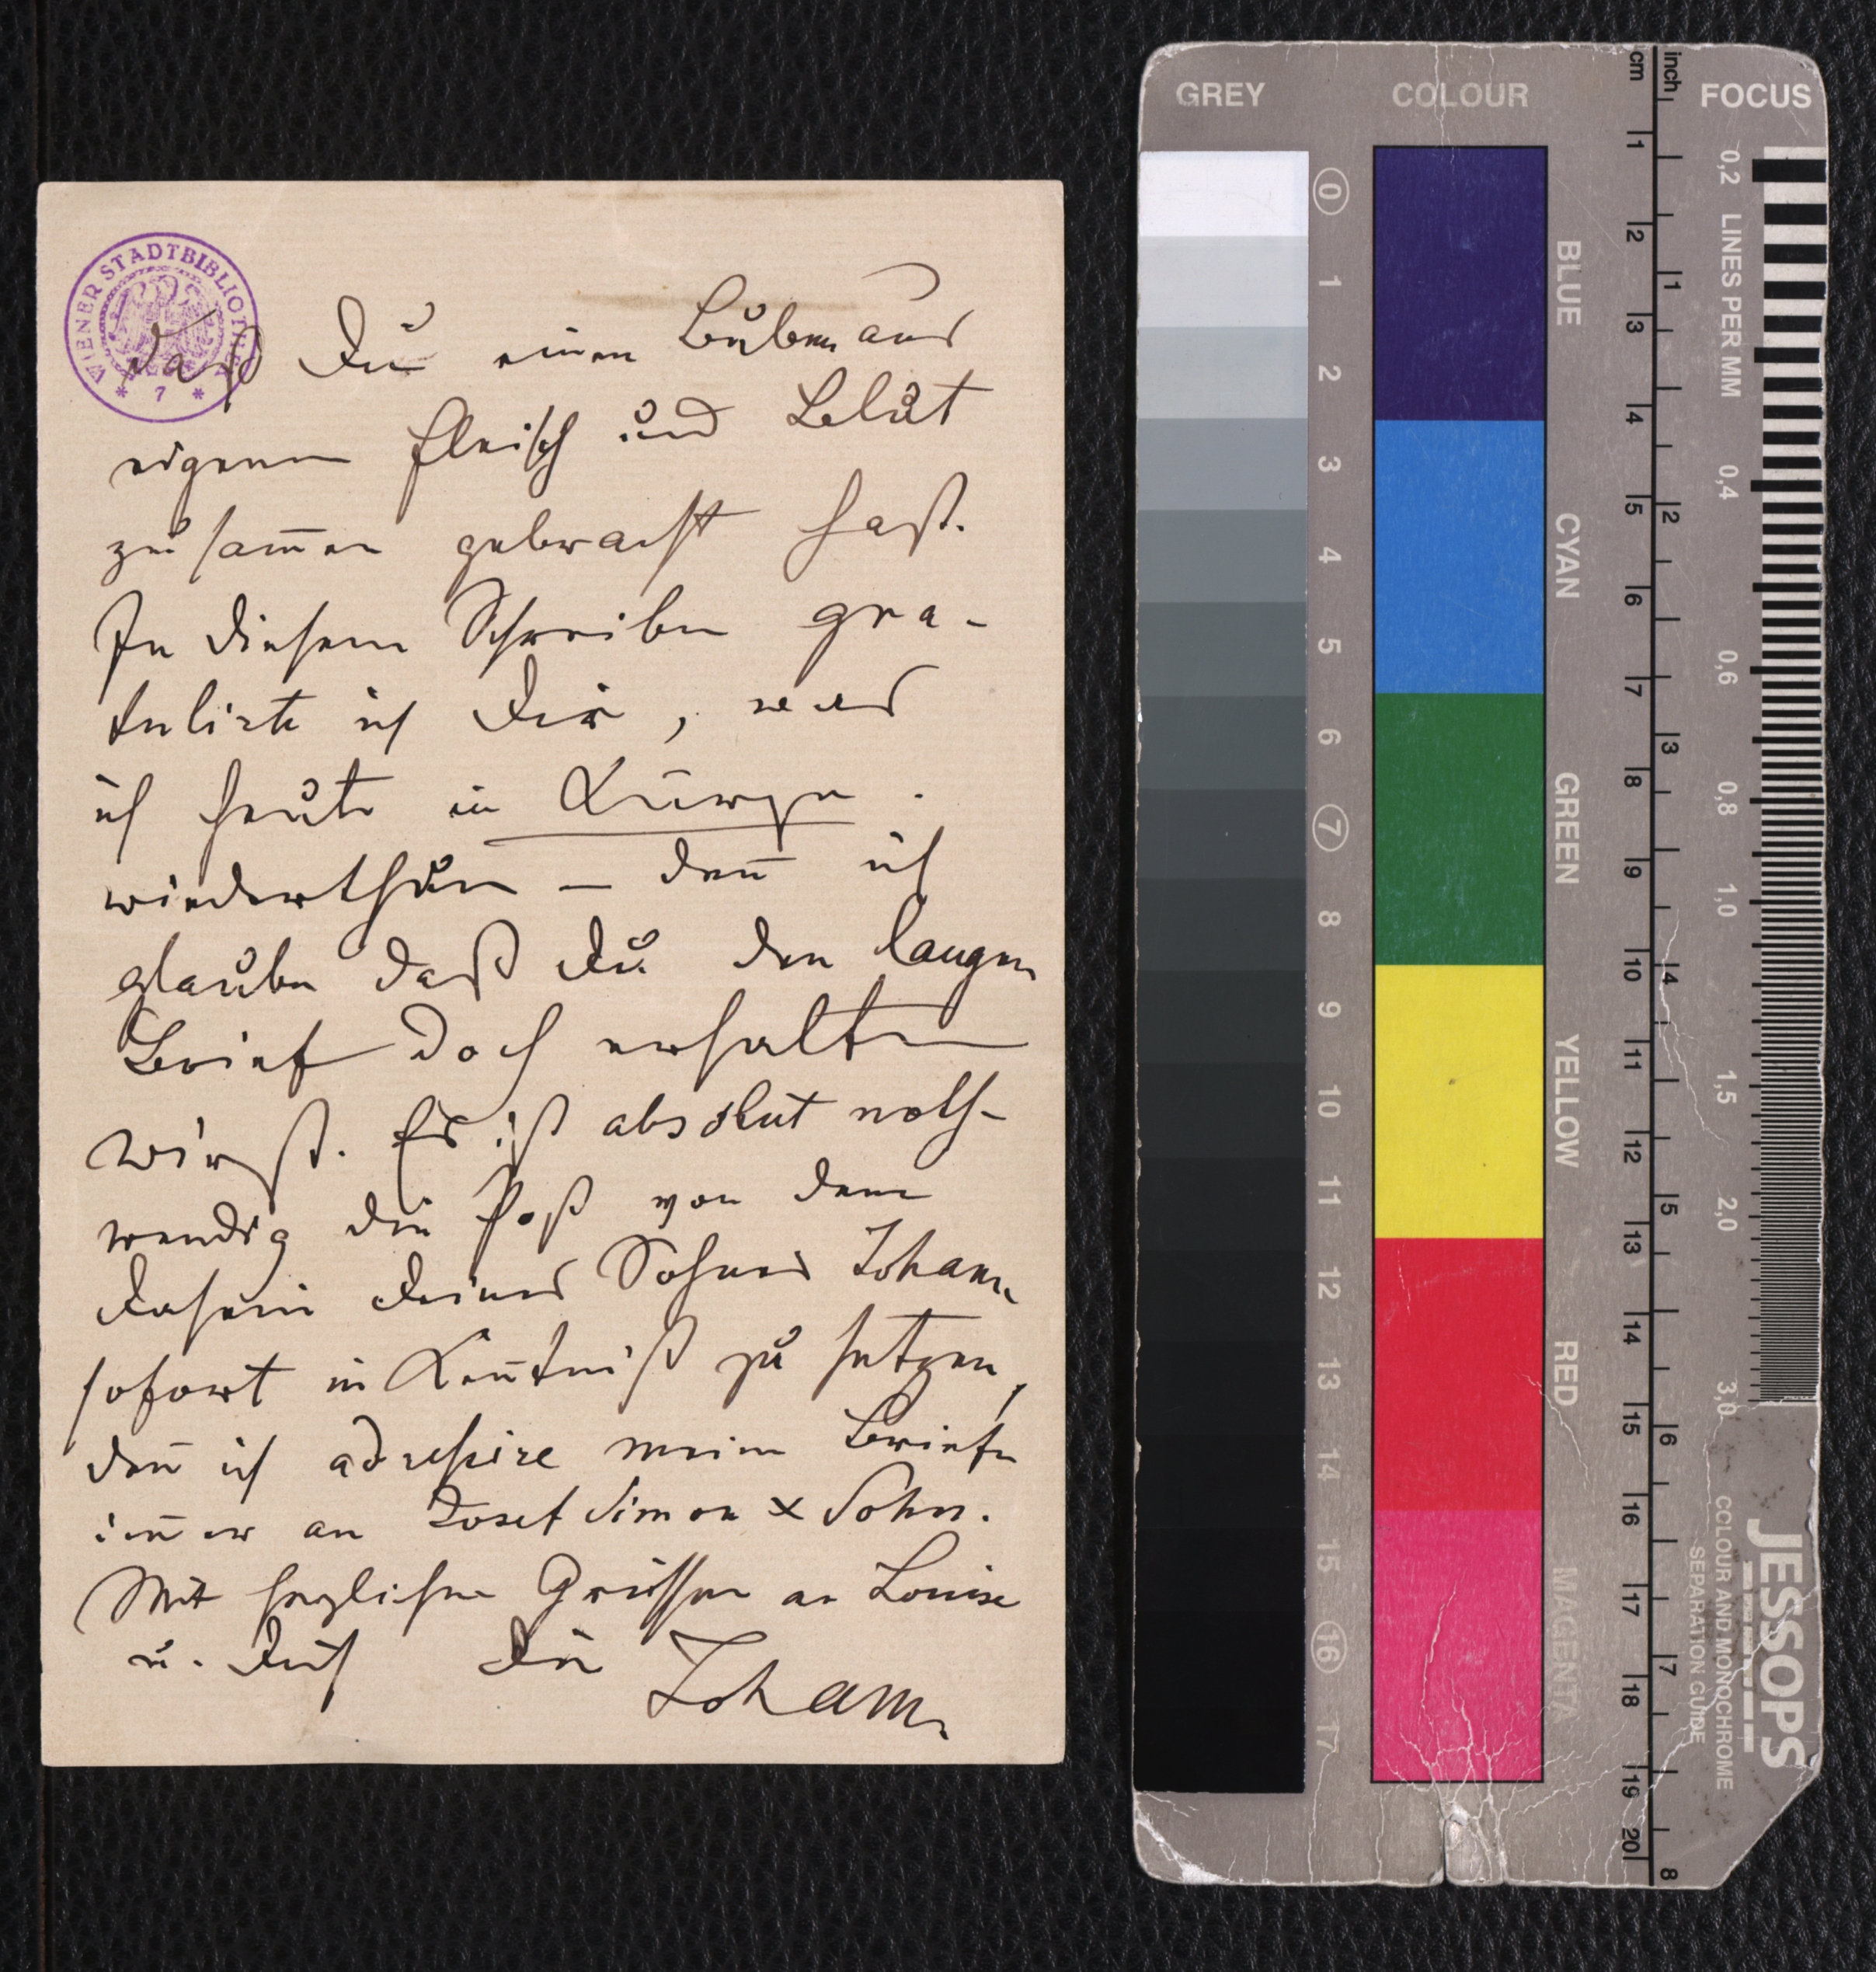 WIENER STADTBIBLIOTHEK
* 7 *
daß Du einen Buben aus
eigenem Fleisch und Blut
zusam̄en gebraut hast.
In diesem Schreiben gra-
tulirte ich Dir, was
ich heute in Kürze
wiederthue – den̄ ich
glaube daß Du den langen
Brief doch erhalten
wirst. Es ist absolut noth-
wendig die Post von dem
Dasein Deines Sohnes Johann
sofort in Ken̄tniß zu setzen,
den̄ ich adressire meine Briefe
im̄er an Josef Simon & Sohn.
Mit herzlichen Grüssen an Louise
u. Dich Dein Johann
GREY COLOUR cm inch FOCUS
0 1 2 3 4 5 6 7 8 9 10 11 12 13 14 15 16 17
BLUE
CYAN
GREEN
YELLOW
RED
MAGENTA
1 2 3 4 5 6 7 8 9 10 11 12 13 14 15 16 17 18 19 20
1 2 3 4 5 6 7 8
0,2 LINES PER MM 0,4 0,6 0,8 1,0 1,5 2,0 3,0
JESSOPS
COLOUR AND MONOCHROME
SEPARATION GUIDE